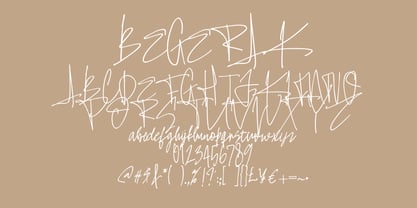 BEGERAK
ABCDEFGHIJKLMNO
PQRSTUVWXYZ
abcdefghijklmnopqrstuvwxyz
0123456789